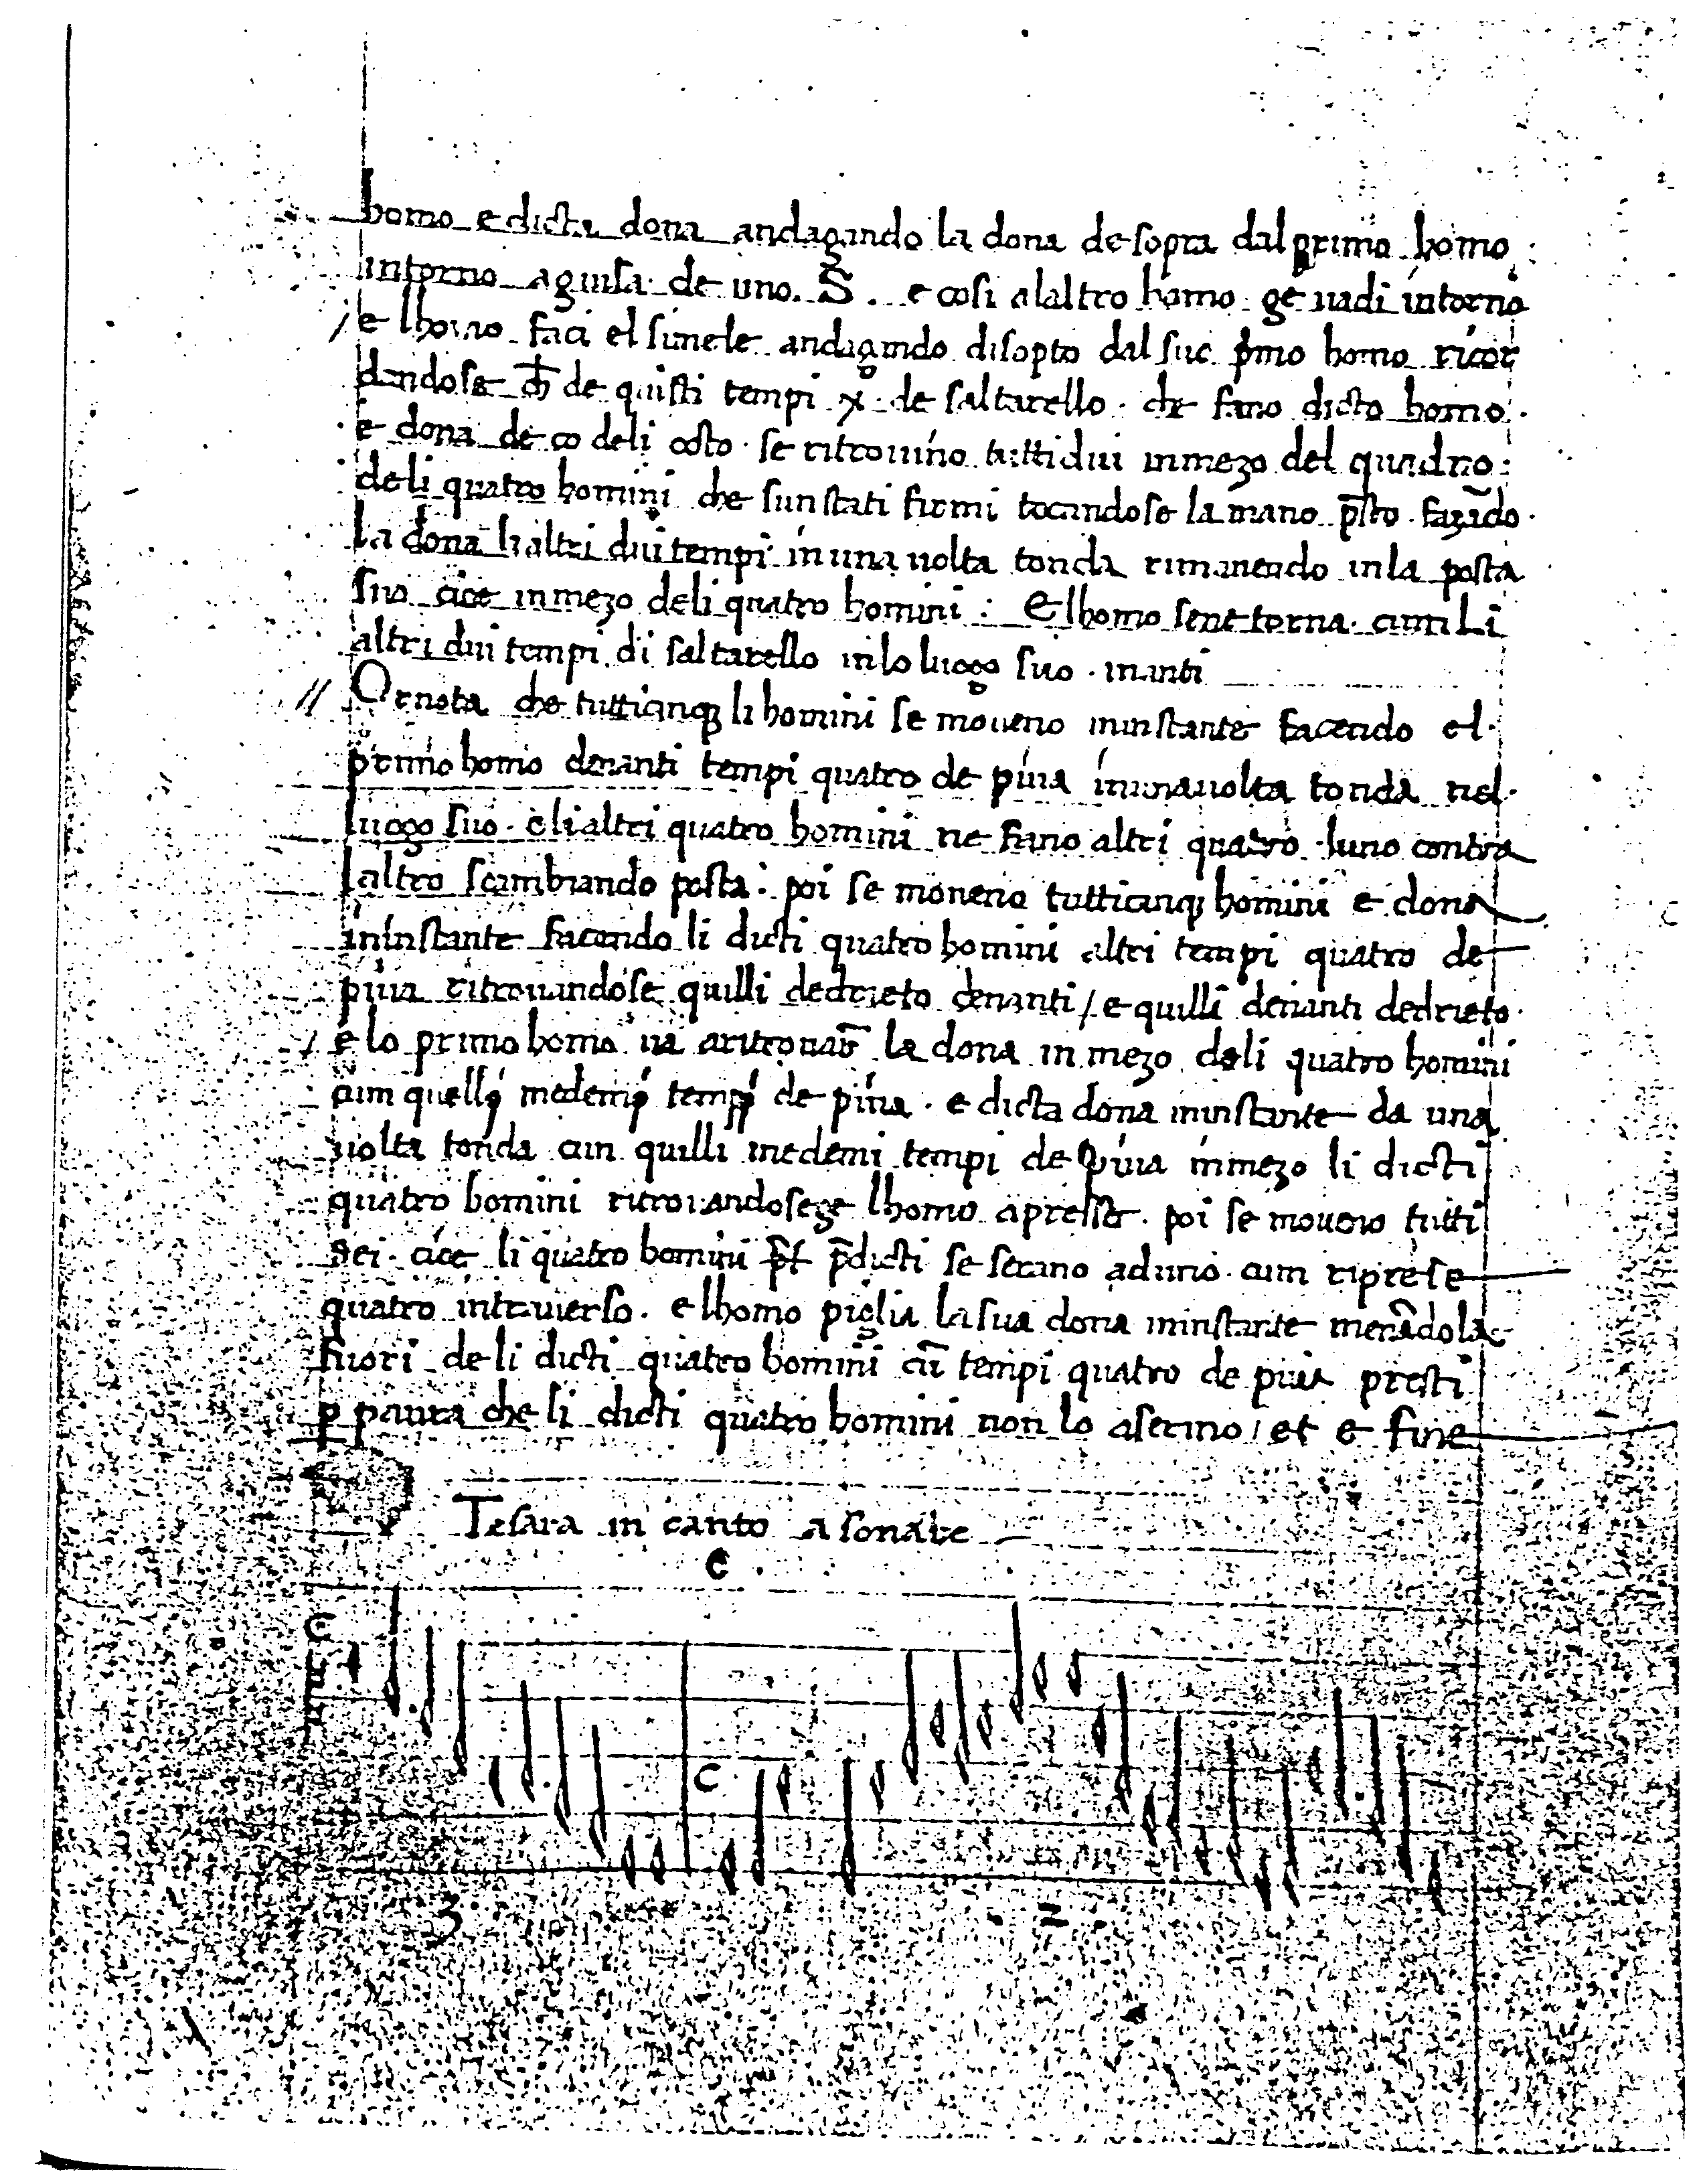 homo e dicta dona andagando la dona de sopra dal primo homo
intorno a guisa de uno .S. e cosi alaltro homo ge uadi intorno
/ e lhomo faci el simele andagando disopto dal suc pmo homo ricor
dandose ch de quisti tempi x de saltarello · che fano dicto homo ·
e dona de co deli costo · se ritrouino tutti dui inmezo del quadro :
de li quatro homini che sun stati firmi tocandose la mano p̄sto · fazādo ·
la dona li altri dui tempi in una uolta tonda rimanendo in la posta
sua cioe in mezo de li quatro homini : El homo sene torna cum Li
altri dui tempi di saltarello in lo luogo suo · inanti
// Or nota che tutticinq li homini se moueno ininstante facendo el ·
primo homo denanti tempi quatro de piua in una uolta tonda nel ·
luogo suo · e li altri quatro homini ne fano altri quatro · luno contra
laltro scambiando posta : poi se moueno tutticinq homini e dona
in instante facendo li dicti quatro homini altri tempi quatro de
piua ritrouandose quilli dedrieto denanti / e quilli denanti dedrieto ·
/ e lo primo homo ua aritrouar̄ la dona in mezo de li quatro homini
cum quelli medemi tempi de piua · e dicta dona ininstante da una
uolta tonda cun quilli medemi tempi de piua inmezo li dicti
quatro homini ritrouandosege lhomo apresso · poi se moueno tutti
sei · cioe li quatro homini p̄dicti se serano aduno · cum riprese
quatro intrauerso · e lhomo piglia la sua dona ininstante menādola
fuori de li dicti quatro homini cū tempi quatro de piua presti
p paura che li dicti quatro homini non lo aserino / et e fine
Tesara in canto a sonare
C
C
C
3
2